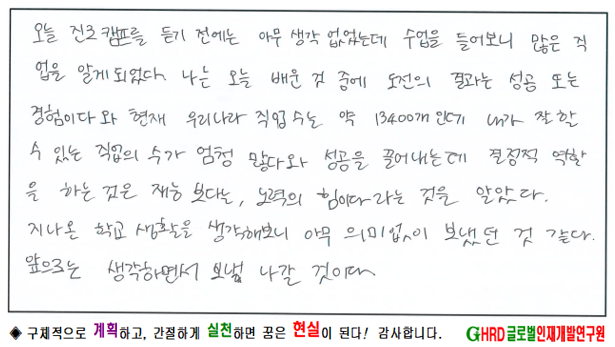 오늘 진로캠프를 듣기 전에는 아무 생각 없었는데 수업을 들어보니 많은 직
업을 알게 되었다. 나는 오늘 배운 것 중에 도전의 결과는 성공 또는
경험이다와 현재 우리나라 직업 수는 약 13400개 인데 내가 잘 할
수 있는 직업의 수가 엄청 많다와 성공을 끌어내는데 결정적 역할
을 하는 것은 재능 보다는, 노력의 힘이다라는 것을 알았다.
지나온 학교 생활을 생각해보니 아무 의미없이 보냈던 것 같다.
앞으로는 생각하면서 보냄 나갈 것이다.
◈ 구체적으로 계획하고, 간절하게 실천하면 꿈은 현실이 된다! 감사합니다. GHRD글로벌인재개발연구원